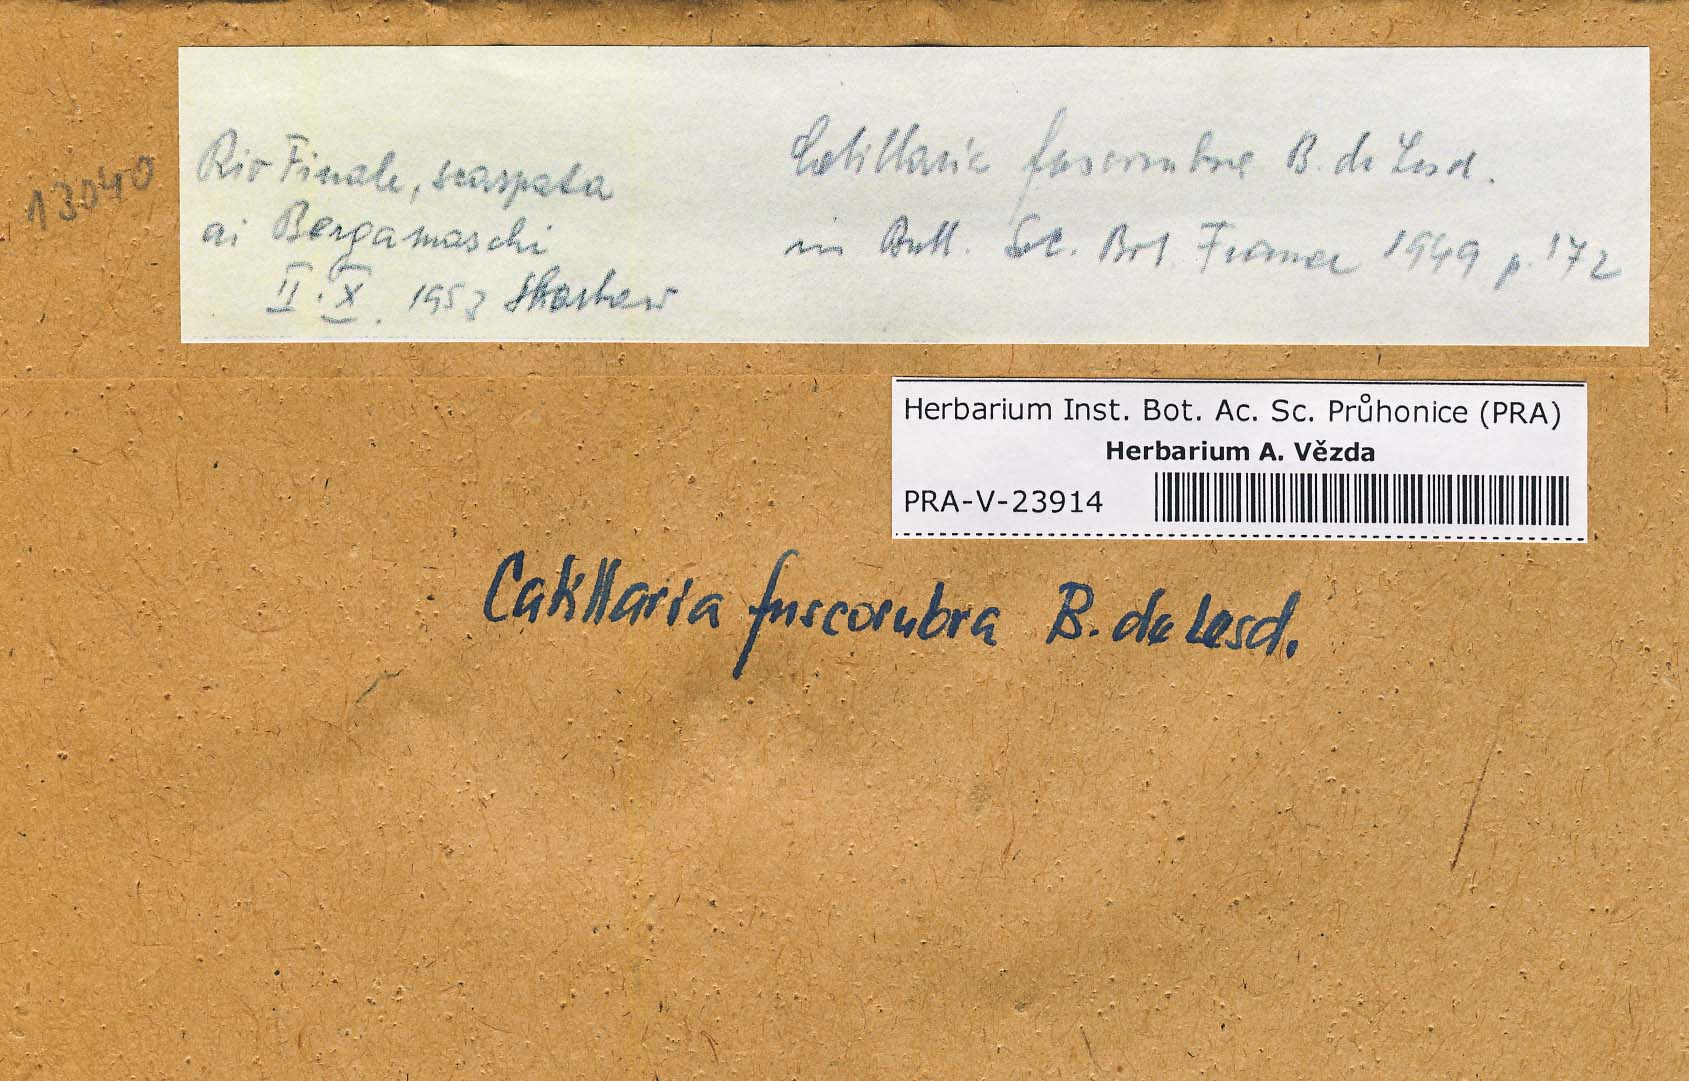 13040
Rio Finale, scarpata
ai Bergamaschi
II. X. 1953 Sbarbaro
Catillaria fuscorubra B. de Lesd.
in Bull. Soc. Bot. France 1949 p. 172
Herbarium Inst. Bot. Ac. Sc. Průhonice (PRA)
Herbarium A. Vězda
PRA-V-23914
Catillaria fuscorubra B. de Lesd.